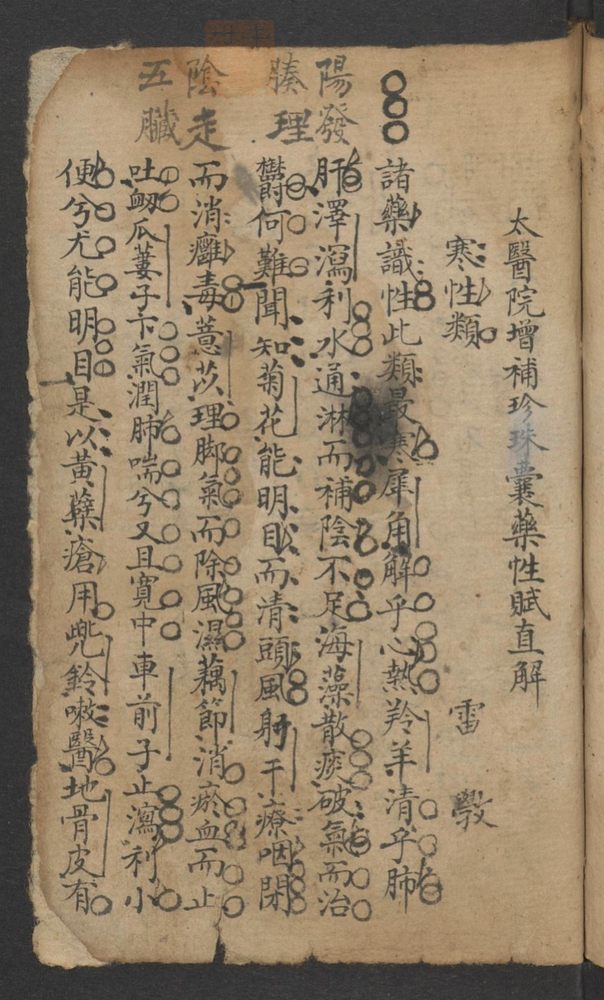 太醫院增補珍珠囊藥性賦直解
寒性類 雷斅
諸藥識性此類最寒犀角解乎心熱羚羊清乎肺
肝澤瀉利水通淋而補陰不足海藻散痰破氣而治
何難聞知菊花能明目而清頭風射干療咽閉
而消癰毒薏苡理脚氣而除風濕藕節消瘀血而止
吐衂瓜蔞子下氣潤肺喘兮又且寬中車前子止瀉利小
便兮尤能明目是以黄蘗瘡用兠鈴嗽醫地骨皮有
陽發
腠理
陰走
五臟